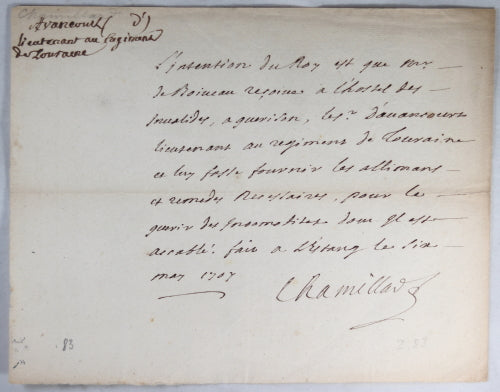 Avancourt (d')
lieutenant au Regiment
de Touraine
L'Intention du Roy est que Mr
de Boiveau reçoive a l'hostel des
Invalides, a guerison, le sr. d'avancourt
lieutenant au regiment de Touraine
et luy fasse fournir les allimans
et remedes necessaires, pour le
guerir des Incomoditez dont Il est
accablé. fait a L'Estang le six
may 1707
Chamillart
83
283